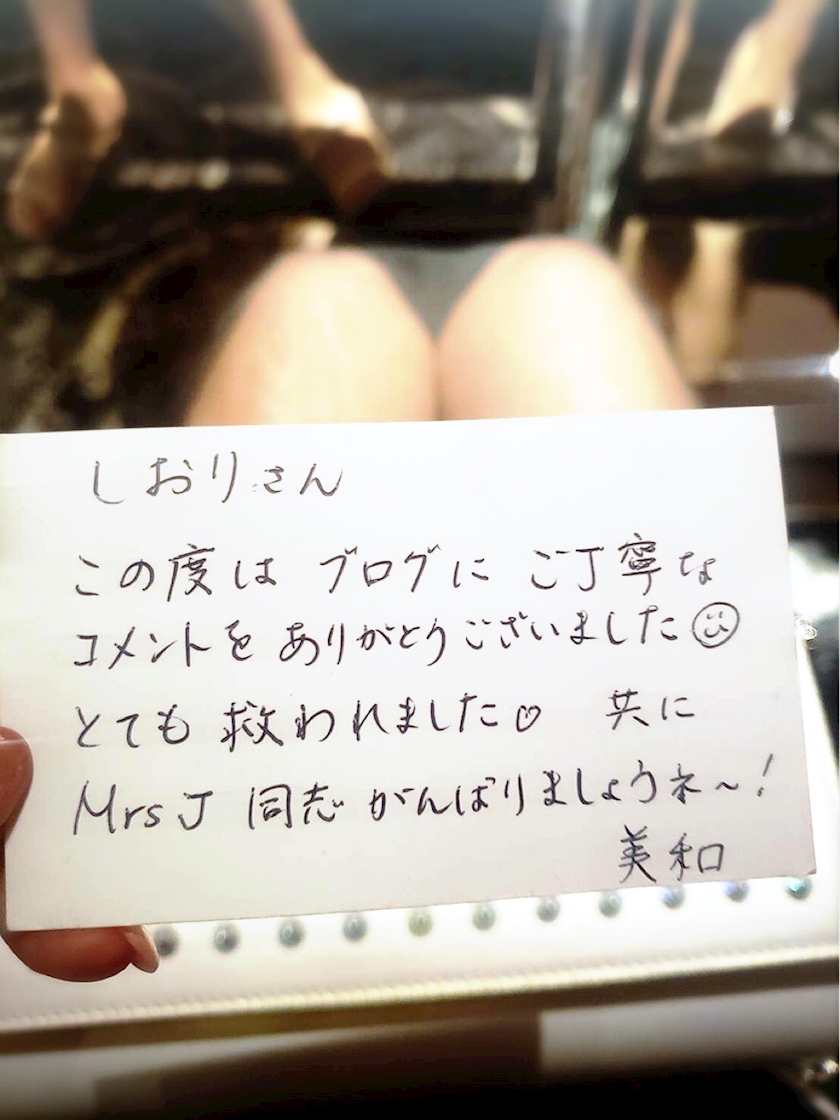 しおりさん
この度は ブログに ご丁寧な
コメントを ありがとうございました☺
とても 救われました 共に
Mrs J 同志 がんばりましょうネ〜!
美和